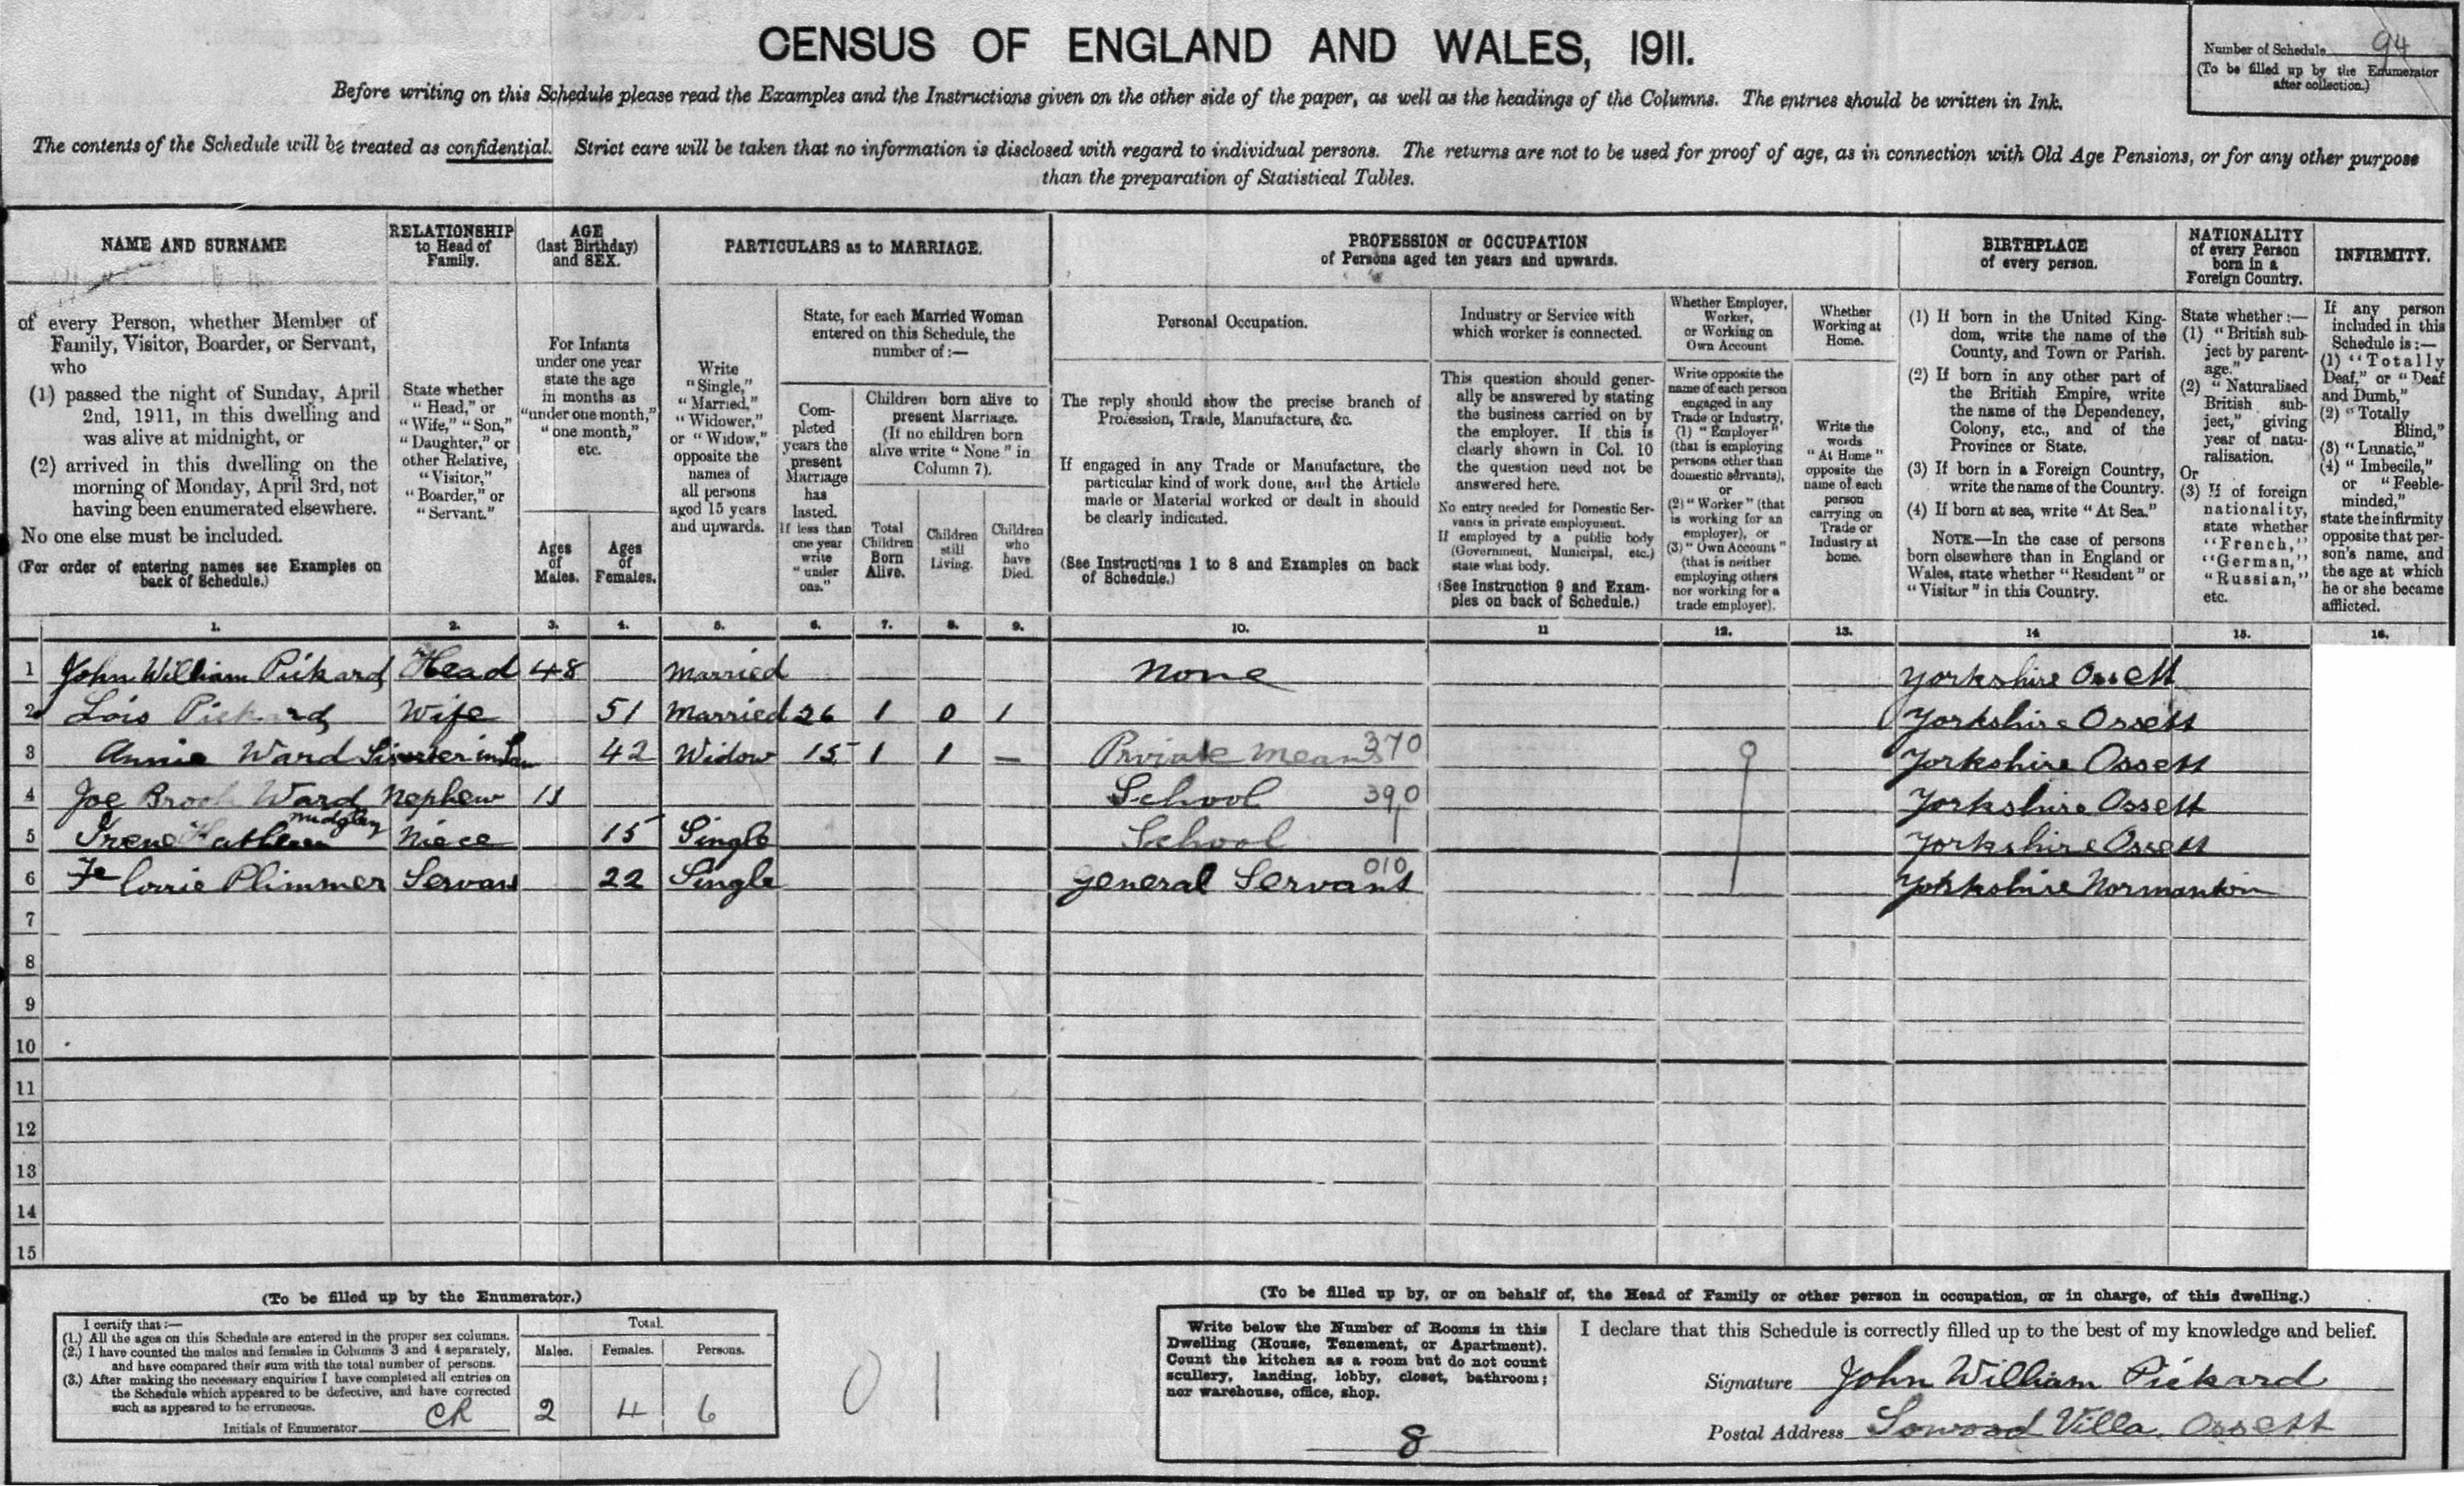 CENSUS OF ENGLAND AND WALES, 1911.
Number of Schedule 94
(To be filled up by the Enumerator
after collection.)
Before writing on this Schedule please read the Examples and the Instructions given on the other side of the paper, as well as the headings of the Columns. The entries should be written in Ink.
The contents of the Schedule will be treated as confidential. Strict care will be taken that no information is disclosed with regard to individual persons. The returns are not to be used for proof of age, as in connection with Old Age Pensions, or for any other purpose
than the preparation of Statistical Tables.
NAME AND SURNAME
of every Person, whether Member of
Family, Visitor, Boarder, or Servant,
who
(1) passed the night of Sunday, April
2nd, 1911, in this dwelling and
was alive at midnight, or
(2) arrived in this dwelling on the
morning of Monday, April 3rd, not
having been enumerated elsewhere.
No one else must be included.
(For order of entering names see Examples on
back of Schedule.)
RELATIONSHIP
to Head of
Family.
State whether
"Head," or
"Wife," "Son,"
"Daughter," or
other Relative,
"Visitor,"
"Boarder," or
"Servant."
AGE
(last Birthday)
and SEX.
For Infants
under one year
state the age
in months as
"under one month,"
"one month,"
etc.
Ages
of
Males.
Ages
of
Females.
PARTICULARS as to MARRIAGE.
Write
"Single,"
"Married,"
"Widower,"
or "Widow,"
opposite the
names of
all persons
aged 15 years
and upwards.
State, for each Married Woman
entered on this Schedule, the
number of:—
Com-
pleted
years the
present
Marriage
has
lasted.
If less than
one year
write
"under
one."
Children born alive to
present Marriage.
(If no children born
alive write "None" in
Column 7).
Total
Children
Born
Alive.
Children
still
Living.
Children
who
have
Died.
PROFESSION or OCCUPATION
of Persons aged ten years and upwards.
Personal Occupation.
The reply should show the precise branch of
Profession, Trade, Manufacture, &c.
If engaged in any Trade or Manufacture, the
particular kind of work done, and the Article
made or Material worked or dealt in should
be clearly indicated.
(See Instructions 1 to 8 and Examples on back
of Schedule.)
Industry or Service with
which worker is connected.
This question should gener-
ally be answered by stating
the business carried on by
the employer. If this is
clearly shown in Col. 10
the question need not be
answered here.
No entry needed for Domestic Ser-
vants in private employment.
If employed by a public body
(Government, Municipal, etc.)
state what body.
(See Instruction 9 and Exam-
ples on back of Schedule.)
Whether Employer,
Worker,
or Working on
Own Account
Write opposite the
name of each person
engaged in any
Trade or Industry,
(1) "Employer"
(that is employing
persons other than
domestic servants),
or
(2) "Worker" (that
is working for an
employer), or
(3) "Own Account"
(that is neither
employing others
nor working for a
trade employer).
Whether
Working at
Home.
Write the
words
"At Home"
opposite the
name of each
person
carrying on
Trade or
Industry at
home.
BIRTHPLACE
of every person.
(1) If born in the United King-
dom, write the name of the
County, and Town or Parish.
(2) If born in any other part of
the British Empire, write
the name of the Dependency,
Colony, etc., and of the
Province or State.
(3) If born in a Foreign Country,
write the name of the Country.
(4) If born at sea, write "At Sea."
NOTE.—In the case of persons
born elsewhere than in England or
Wales, state whether "Resident" or
"Visitor" in this Country.
NATIONALITY
of every Person
born in a
Foreign Country.
State whether:—
(1) "British sub-
ject by parent-
age."
(2) "Naturalised
British sub-
ject," giving
year of natu-
ralisation.
Or
(3) If of foreign
nationality,
state whether
"French,"
"German,"
"Russian,"
etc.
INFIRMITY.
If any person
included in this
Schedule is:—
(1) "Totally
Deaf," or "Deaf
and Dumb,"
(2) "Totally
Blind,"
(3) "Lunatic,"
(4) "Imbecile,"
or "Feeble-
minded,"
state the infirmity
opposite that per-
son's name, and
the age at which
he or she became
afflicted.
1. 2. 3. 4. 5. 6. 7. 8. 9. 10. 11 12. 13. 14 15. 16.
1 John William Pickard Head 48 Married None Yorkshire Ossett
2 Lois Pickard Wife 51 Married 26 1 0 1 Yorkshire Ossett
3 Annie Ward Sister in Law 42 Widow 15 1 1 — Private Means 370 Yorkshire Ossett
4 Joe Brook Ward Nephew School 390 Yorkshire Ossett
5 Irene Kathleen Midgley Niece 15 Single School Yorkshire Ossett
6 Florrie Plimmer Servant 22 Single General Servant 010 Yorkshire Normanton
7
8
9
10
11
12
13
14
15
(To be filled up by the Enumerator.)
I certify that:—
(1.) All the ages on this Schedule are entered in the proper sex columns.
(2.) I have counted the males and females in Columns 3 and 4 separately,
and have compared their sum with the total number of persons.
(3.) After making the necessary enquiries I have completed all entries on
the Schedule which appeared to be defective, and have corrected
such as appeared to be erroneous.
Initials of Enumerator CR
Total.
Males. Females. Persons.
2 4 6
0 1
(To be filled up by, or on behalf of, the Head of Family or other person in occupation, or in charge, of this dwelling.)
Write below the Number of Rooms in this
Dwelling (House, Tenement, or Apartment).
Count the kitchen as a room but do not count
scullery, landing, lobby, closet, bathroom;
nor warehouse, office, shop.
8
I declare that this Schedule is correctly filled up to the best of my knowledge and belief.
Signature John William Pickard
Postal Address Sowood Villa, Ossett